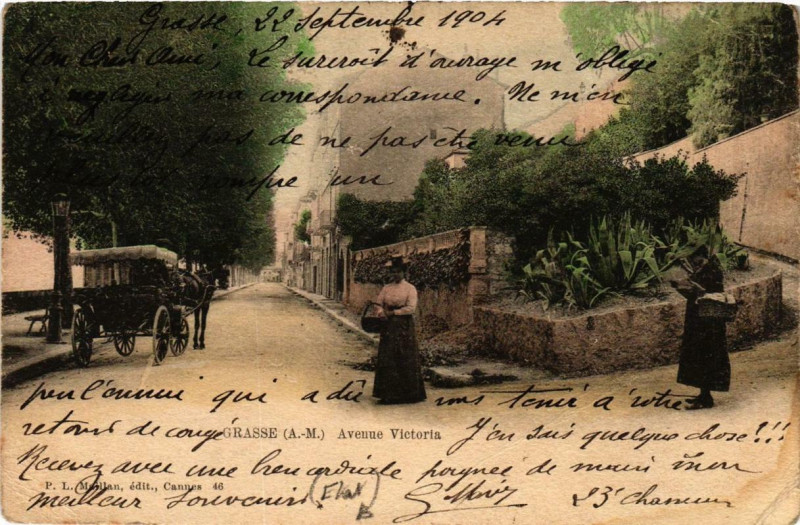 Grasse, 22 Septembre 1904
Mon Cher Ami, Le surcroît d'ouvrage m'a obligé
à négliger ma correspondance. Ne m'en
veuillez pas de ne pas être venu
plus tôt rompre un
peu l'ennui qui a dû vous tenir à votre
retour de congé
GRASSE (A.-M.) Avenue Victoria
J'en sais quelque chose!!!
Recevez avec une bien cordiale poignée de main mon
P. L. Maillan, édit., Cannes 46
meilleur souvenir.
23e Chasseurs